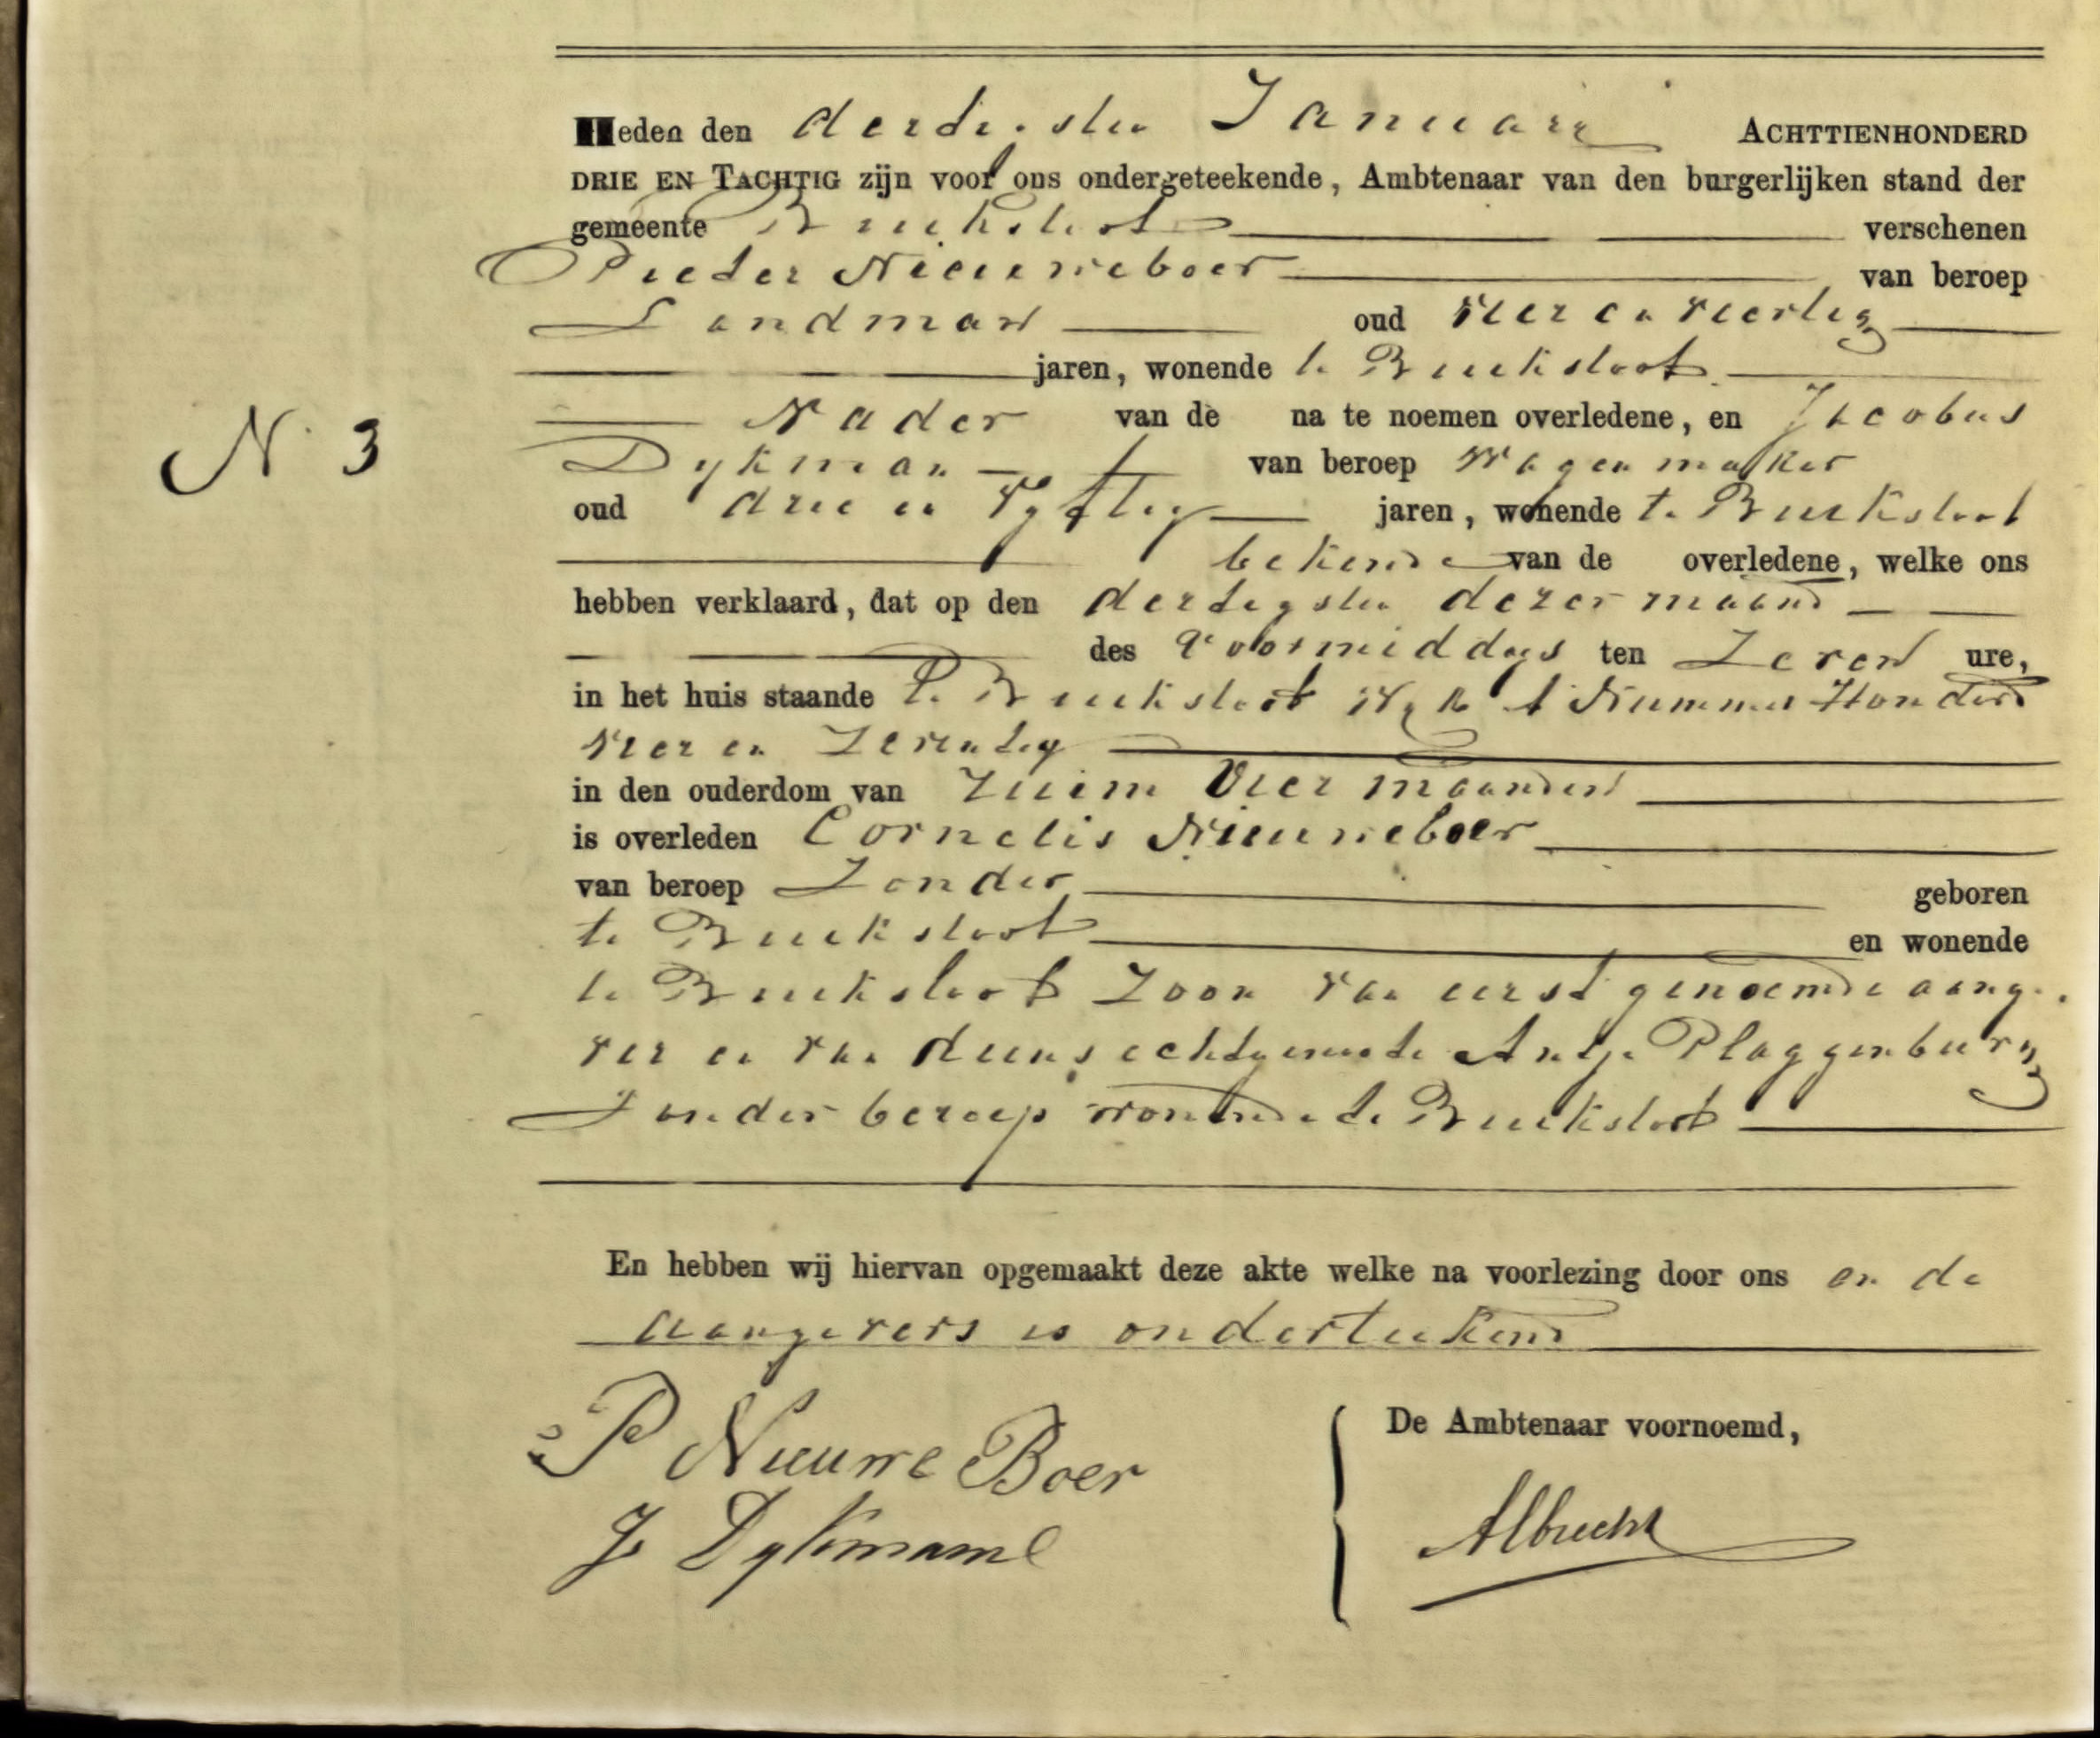 Heden den dertigsten Januari ACHTTIENHONDERD
DRIE EN TACHTIG zijn voor ons ondergeteekende, Ambtenaar van den burgerlijken stand der
gemeente Buiksloot verschenen
Pieter Nieuweboer van beroep
Landman oud vier en veertig
jaren, wonende te Buiksloot
Vader van de na te noemen overledene, en Jacobus
N. 3
Dykman van beroep Wagenmaker
oud drie en vyftig jaren, wonende te Buiksloot
bekende van de overledene, welke ons
hebben verklaard, dat op den dertigsten dezer maand
des voormiddags ten Zeven ure,
in het huis staande te Buiksloot Wyk A Nummer Honderd
vier en Zeventig
in den ouderdom van ruim Vier maanden
is overleden Cornelis Nieuweboer
van beroep Zonder geboren
te Buiksloot en wonende
te Buiksloot Zoon van eerst genoemde aange
ver en van deens echtgenoote Antje Plaggenburg
Zonder beroep wonende te Buiksloot
En hebben wij hiervan opgemaakt deze akte welke na voorlezing door ons en de
aangevers is onderteekend
P Nieuwe Boer
De Ambtenaar voornoemd,
J Dykman
Albrecht